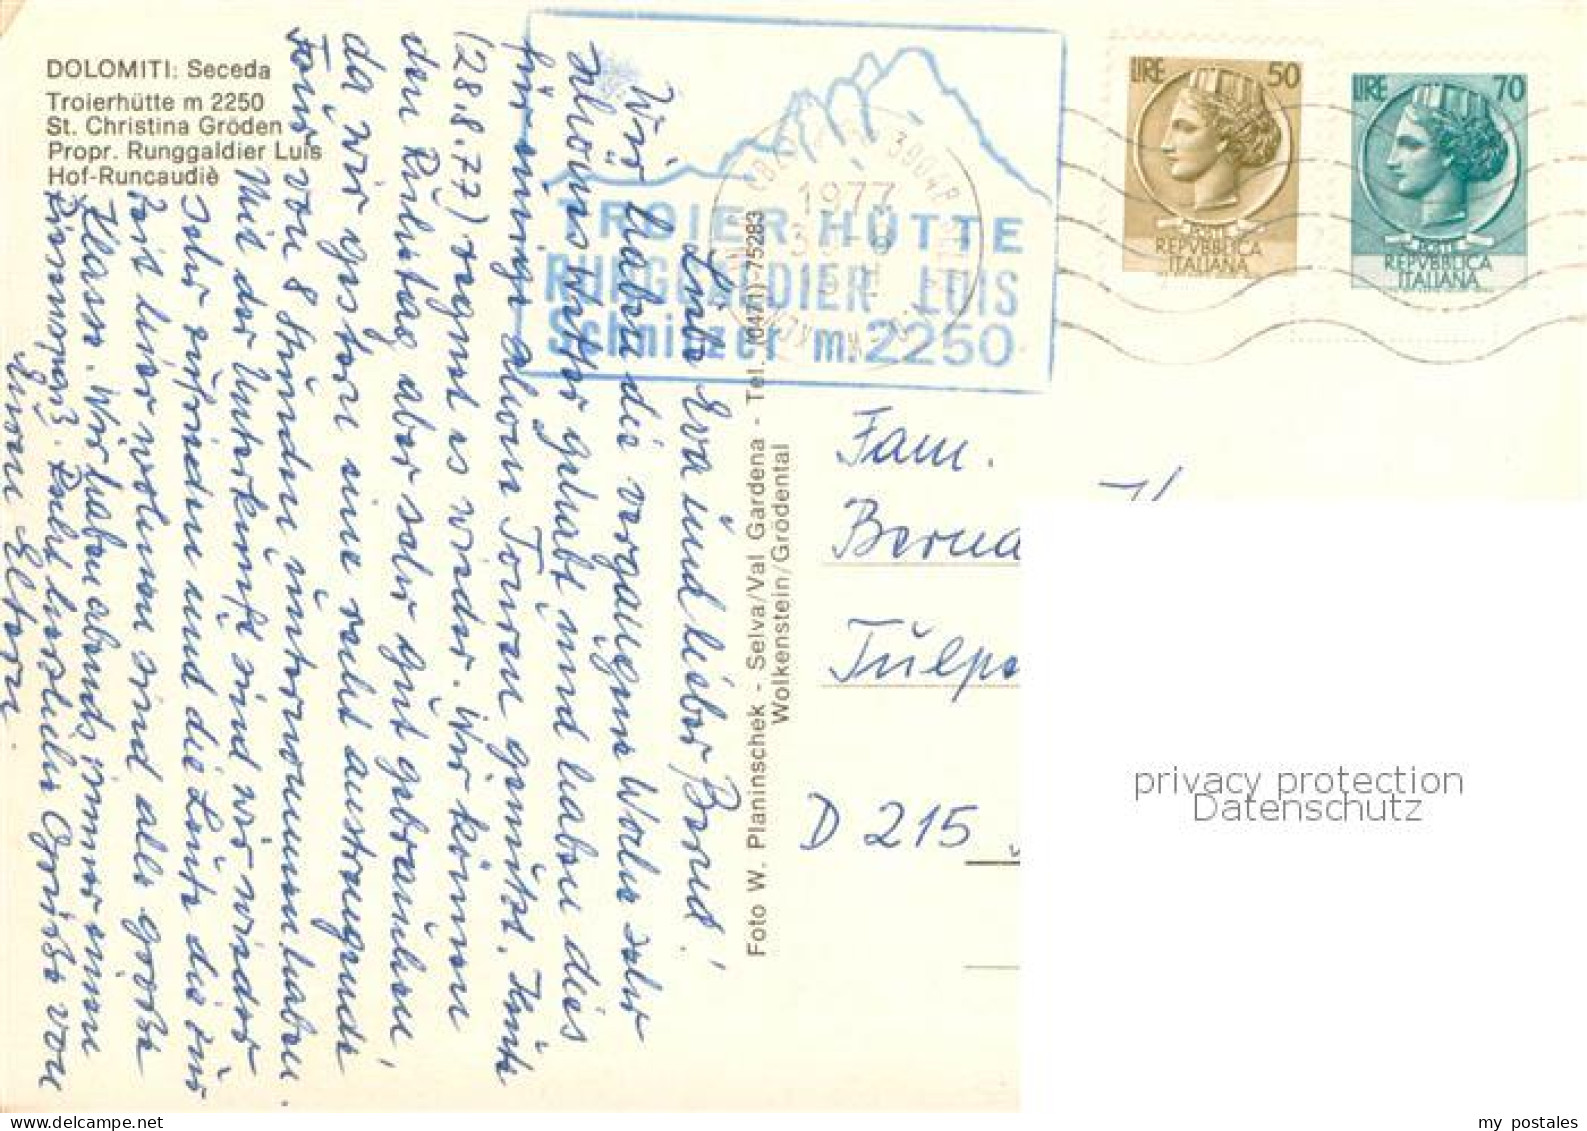 DOLOMITI: Seceda
Troierhütte m 2250
St. Christina Gröden
Propr. Runggaldier Luis
Hof-Runcaudiè
TROIER HÜTTE
RUNGGALDIER LUIS
Schnitzer m. 2250
1977
LIRE 50
POSTE
REPVBBLICA
ITALIANA
LIRE 70
POSTE
REPVBBLICA
ITALIANA
Liebe Eva und lieber Bernd!
Wir haben die vergangene Woche sehr
schönes Wetter gehabt und haben dies
für einige schöne Touren genützt. Heute
(28.8.77) regnet es wieder. Wir können
den Ruhetag aber sehr gut gebrauchen,
da wir gestern eine recht anstrengende
Tour von 8 Stunden unternommen haben.
Mit der Unterkunft sind wir wieder
sehr zufrieden und die Leute die zur
Zeit hier wohnen sind alle große
Klasse. Wir haben abends immer einen
Riesenspaß. Recht herzliche Grüße von
Euren Eltern.
Foto W. Planinschek - Selva/Val Gardena - Tel. (0471) 75283
Wolkenstein/Grödental
Fam.
Bernd
Tulpe
D 215
privacy protection
Datenschutz
my postales